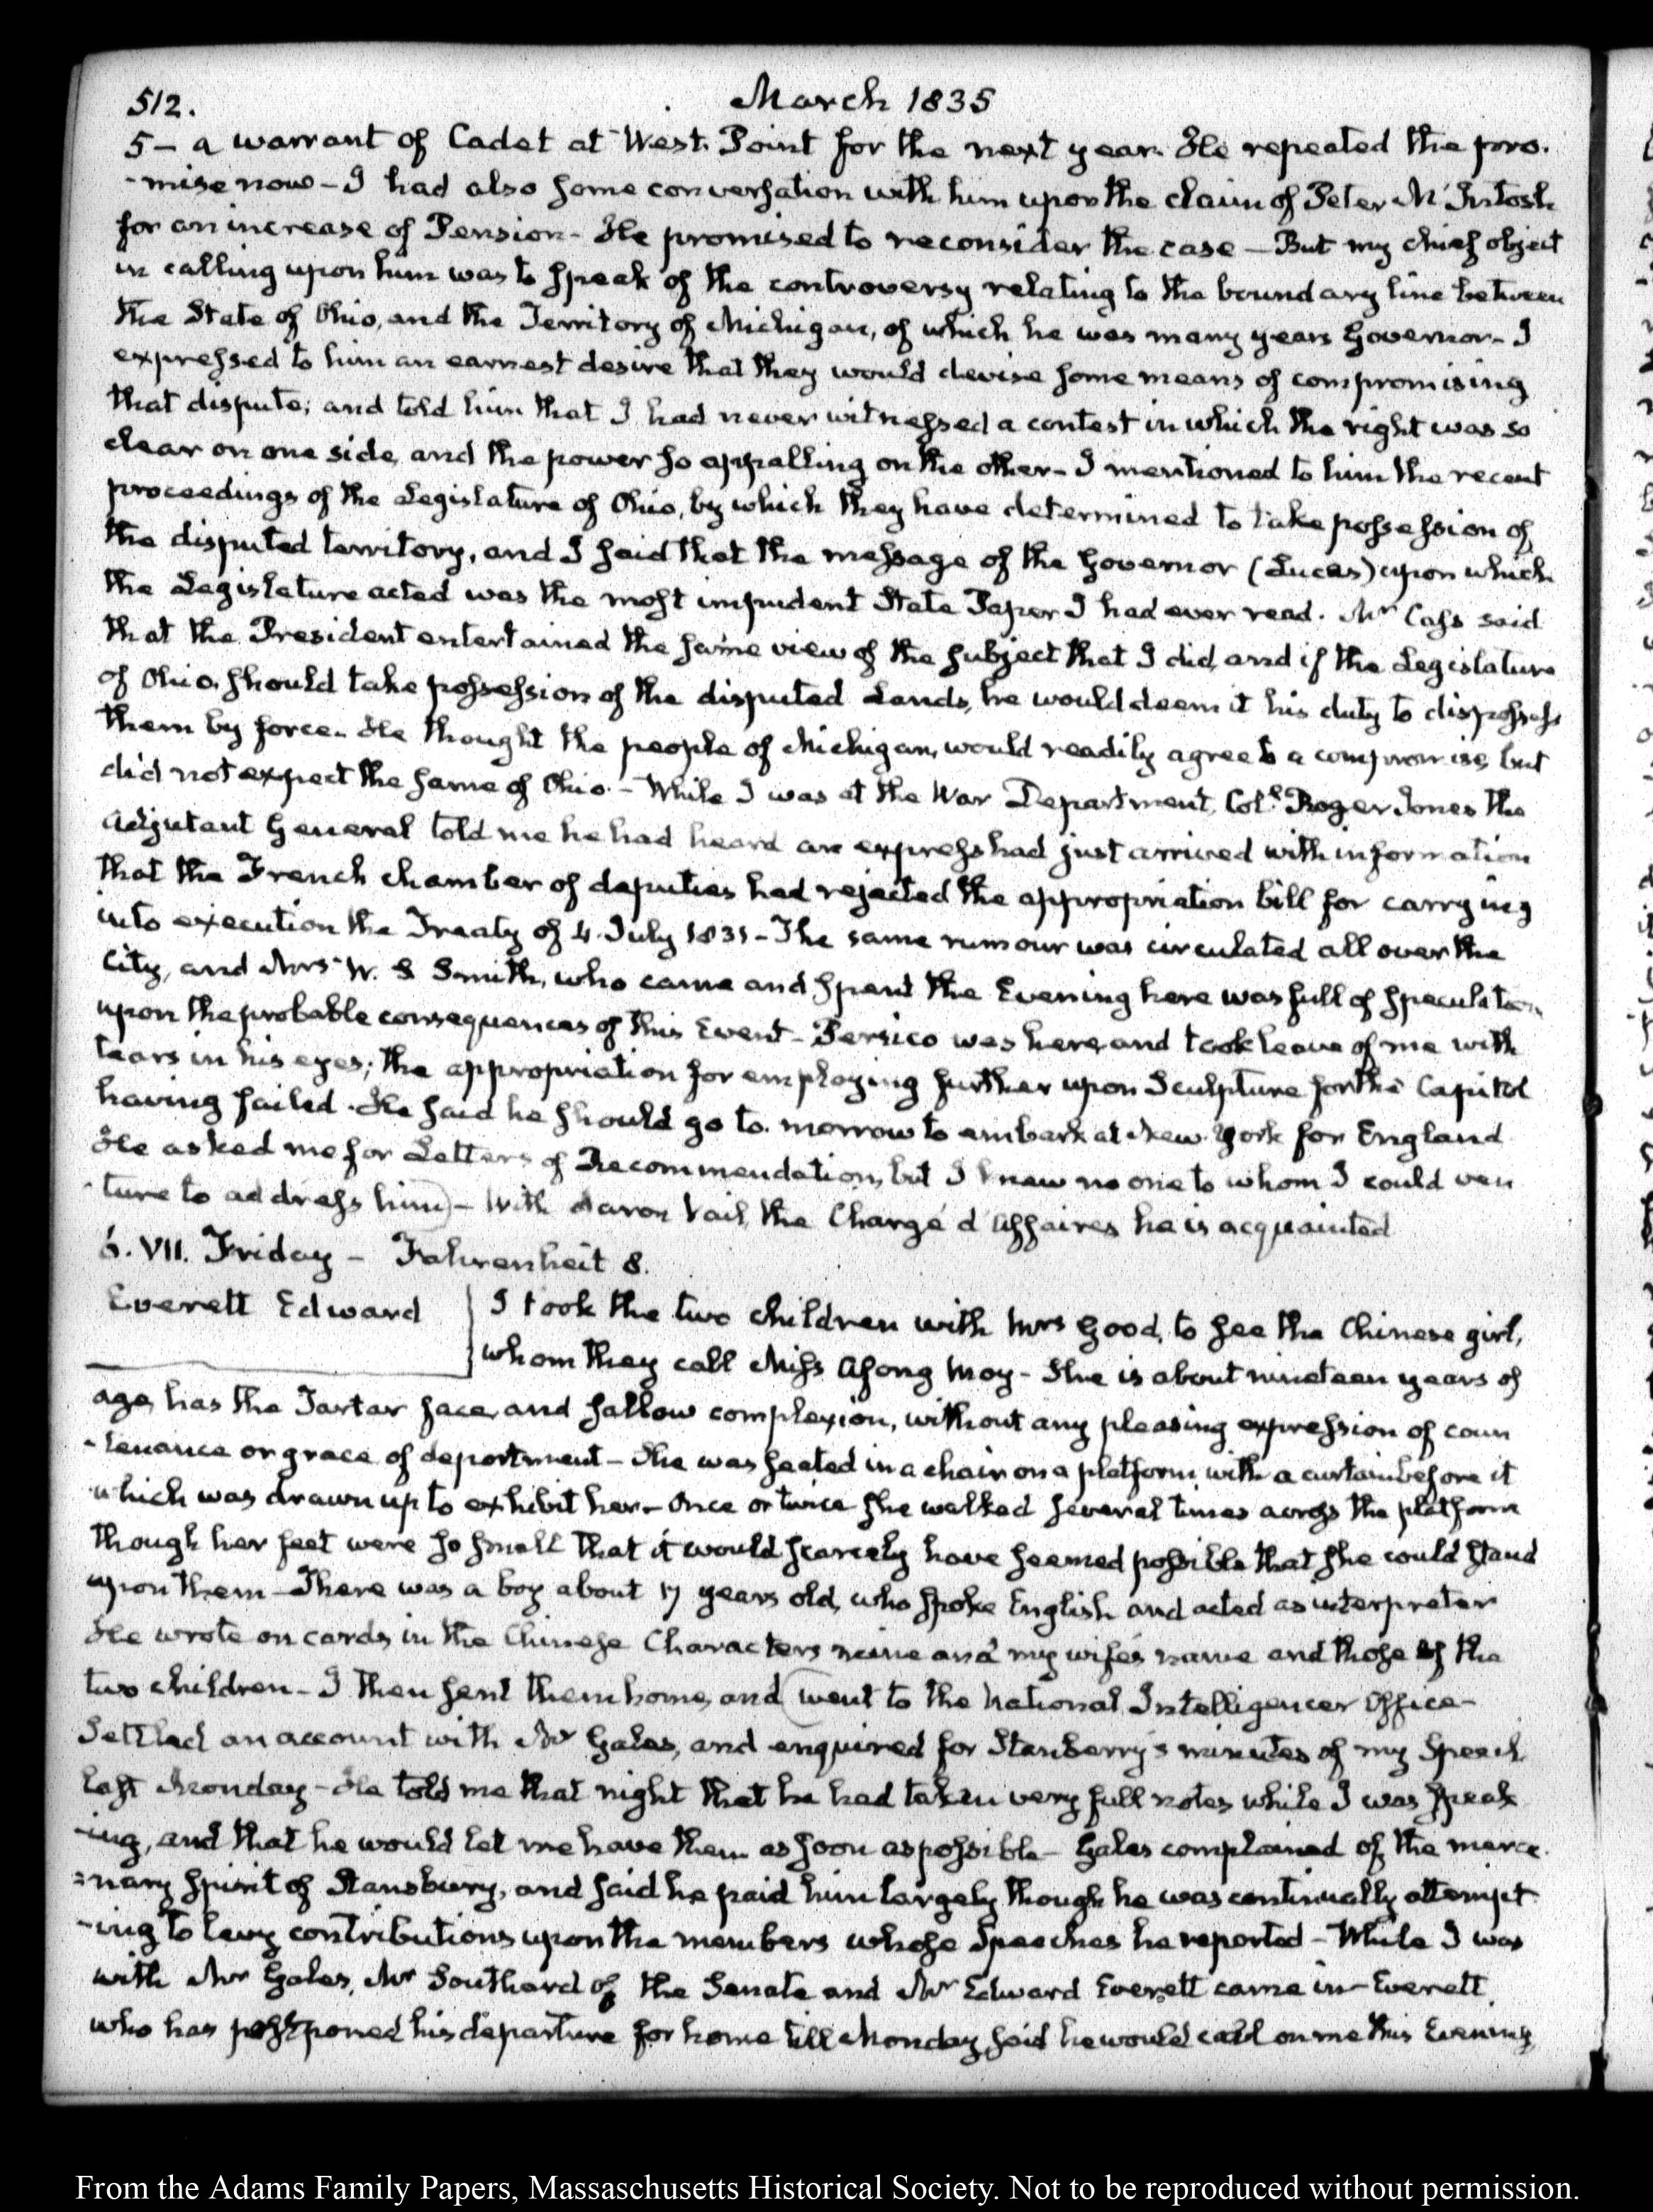 512.
March 1835
5 – a warrant of Cadet at West. Point for the next year. He repeated the pro.
-mise now – I had also some conversation with him upon the claim of Peter McIntosh
for an increase of Pension – He promised to reconsider the case – But my chief object
in calling upon him was to speak of the controversy relating to the boundary line between
the State of Ohio, and the Territory of Michigan, of which he was many years Governor – I
expressed to him an earnest desire that they would devise some means of compromising
that dispute; and told him that I had never witnessed a contest in which the right was so
clear on one side, and the power so appalling on the other – I mentioned to him the recent
proceedings of the Legislature of Ohio, by which they have determined to take possession of
the disputed territory, and I said that the message of the Governor (Lucas) upon which
the Legislature acted was the most impudent State Paper I had ever read. Mr Cass said
that the President entertained the same view of the subject that I did, and if the Legislature
of Ohio, should take possession of the disputed Lands, he would deem it his duty to dispossess
them by force. He thought the people of Michigan, would readily agree to a compromise, but
did not expect the same of Ohio. – While I was at the War Department, Coll. Roger Jones the
Adjutant General told me he had heard an express had just arrived with information
that the French chamber of deputies had rejected the appropriation bill for carrying
into execution the Treaty of 4. July 1831 – The same rumour was circulated all over the
City, and Mrs W. S Smith, who came and spent the Evening here was full of speculation
upon the probable consequences of this Event – Persico was here, and took leave of me with
tears in his eyes; the appropriation for employing further upon Sculpture for the Capitol
having failed. He said he should go to morrow to embark at New York for England
He asked me for Letters of Recommendation, but I knew no one to whom I could ven
-ture to address him – With Aaron Vail, the Chargé d'Affaires he is acquainted
6. VII. Friday – Fahrenheit 8.
Everett Edward
I took the two children with Mrs Good, to see the Chinese girl,
whom they call Miss Afong Moy – She is about nineteen years of
age, has the Tartar face, and sallow complexion, without any pleasing expression of coun
-tenance or grace of deportment – She was seated in a chair on a platform, with a curtain before it
which was drawn up to exhibit her – Once or twice she walked several times across the platform
though her feet were so small that it would scarcely have seemed possible that she could stand
upon them – There was a boy about 17 years old, who spoke English and acted as interpreter
He wrote on cards, in the Chinese Characters mine and my wife's name and those of the
two children – I then sent them home, and went to the National Intelligencer Office –
Settled an account with Mr Gales, and enquired for Stanberry's minutes of my Speech
last Monday – He told me that night that he had taken very full notes while I was speak
-ing, and that he would let me have them as soon as possible – Gales complained of the merce.
=nary spirit of Stansbury, and said he paid him largely though he was continually attempt
-ing to levy contributions upon the members whose Speeches he reported – While I was
with Mr Gales, Mr Southard of the Senate and Mr Edward Everett came in – Everett,
who has postponed his departure for home till Monday, said he would call on me this Evening,
From the Adams Family Papers, Massachusetts Historical Society. Not to be reproduced without permission.